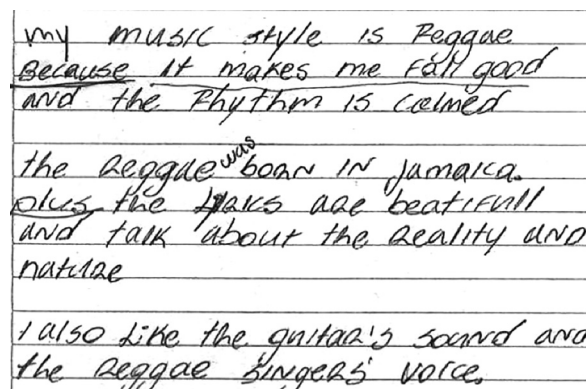 my music style is Reggae
Because it makes me fall good
and the Rhythm is calmed
the Reggae was born in jamaica.
plus the lyrics are beatifull
and talk about the Reality and
nature
I also Like the guitar's sound and
the Reggae singers' voice.